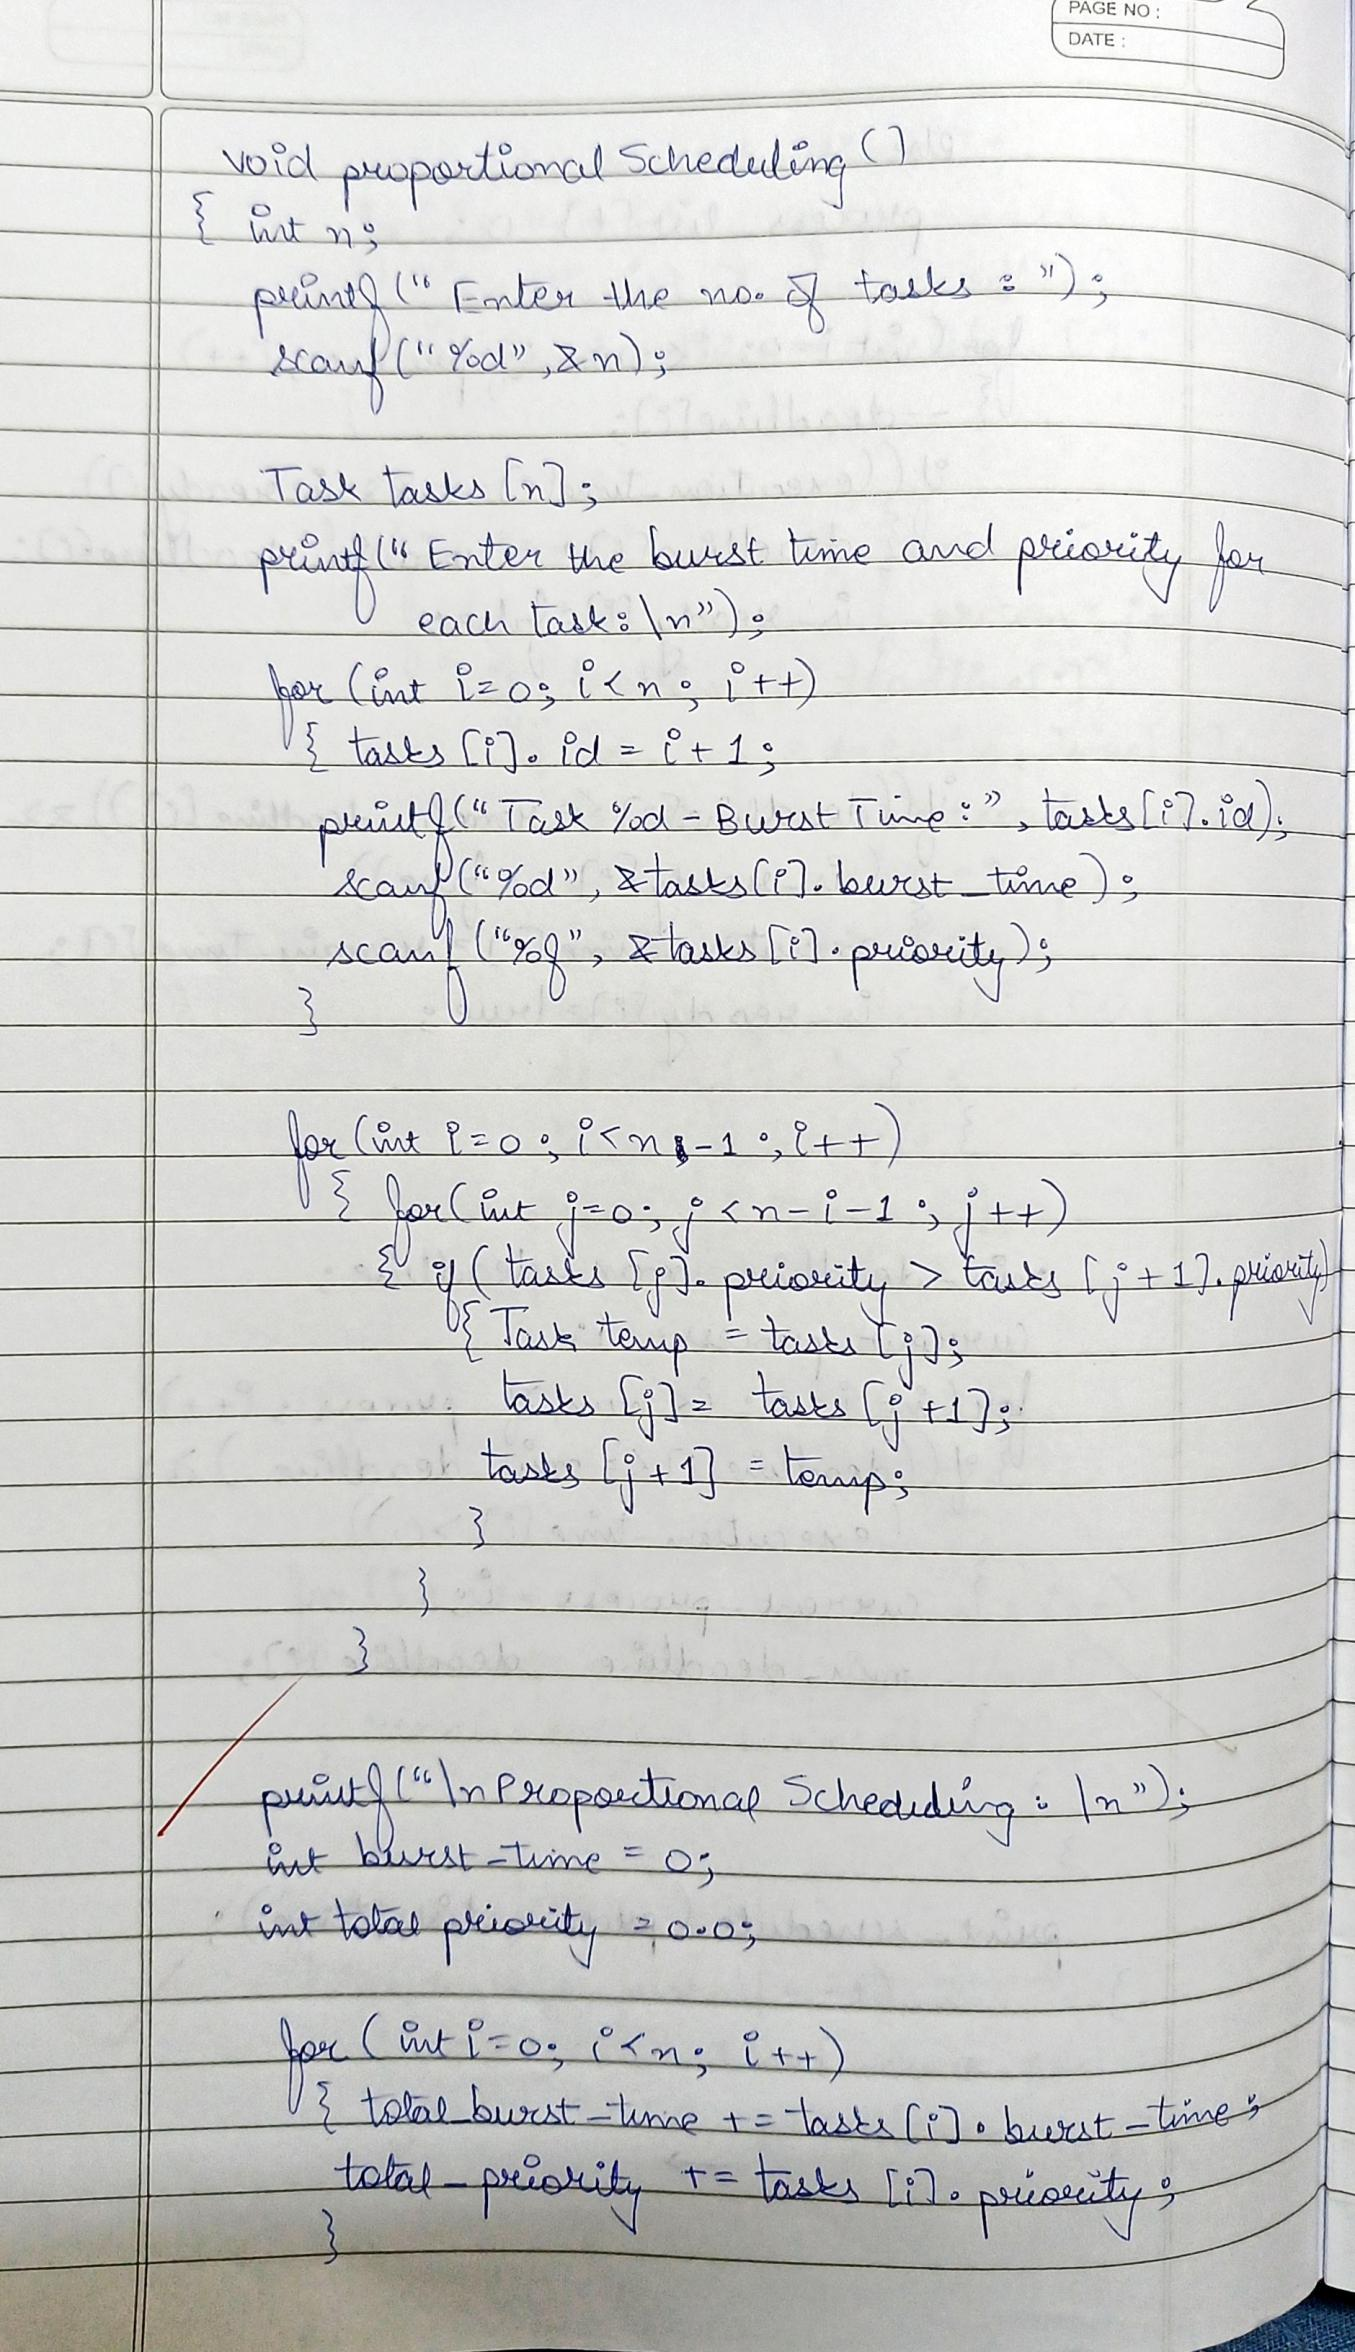 PAGE NO :
DATE :
void proportional Scheduling ()
{ int n;
printf (" Enter the no. of tasks : ");
scanf (" %d", &n);
Task tasks [n];
printf (" Enter the burst time and priority for
each task: \n");
for (int i=0; i<n; i++)
{ tasks [i]. id = i+1;
printf (" Task %d - Burst Time : ", tasks [i].id);
scanf ("%d", &tasks[i]. burst_time);
scanf ("%f", &tasks [i]. priority);
}
for (int i=0; i<n-1; i++)
{ for (int j=0; j<n-i-1; j++)
{ if ( tasks [j]. priority > tasks [j+1]. priority)
{ Task temp = tasks [j];
tasks [j] = tasks [j+1];
tasks [j+1] = temp;
}
}
}
printf ("\n Proportional Scheduling : \n");
int burst_time = 0;
int total priority = 0.0;
for ( int i=0; i<n; i++)
{ total_burst_time += tasks [i]. burst_time;
total_priority += tasks [i]. priority;
}